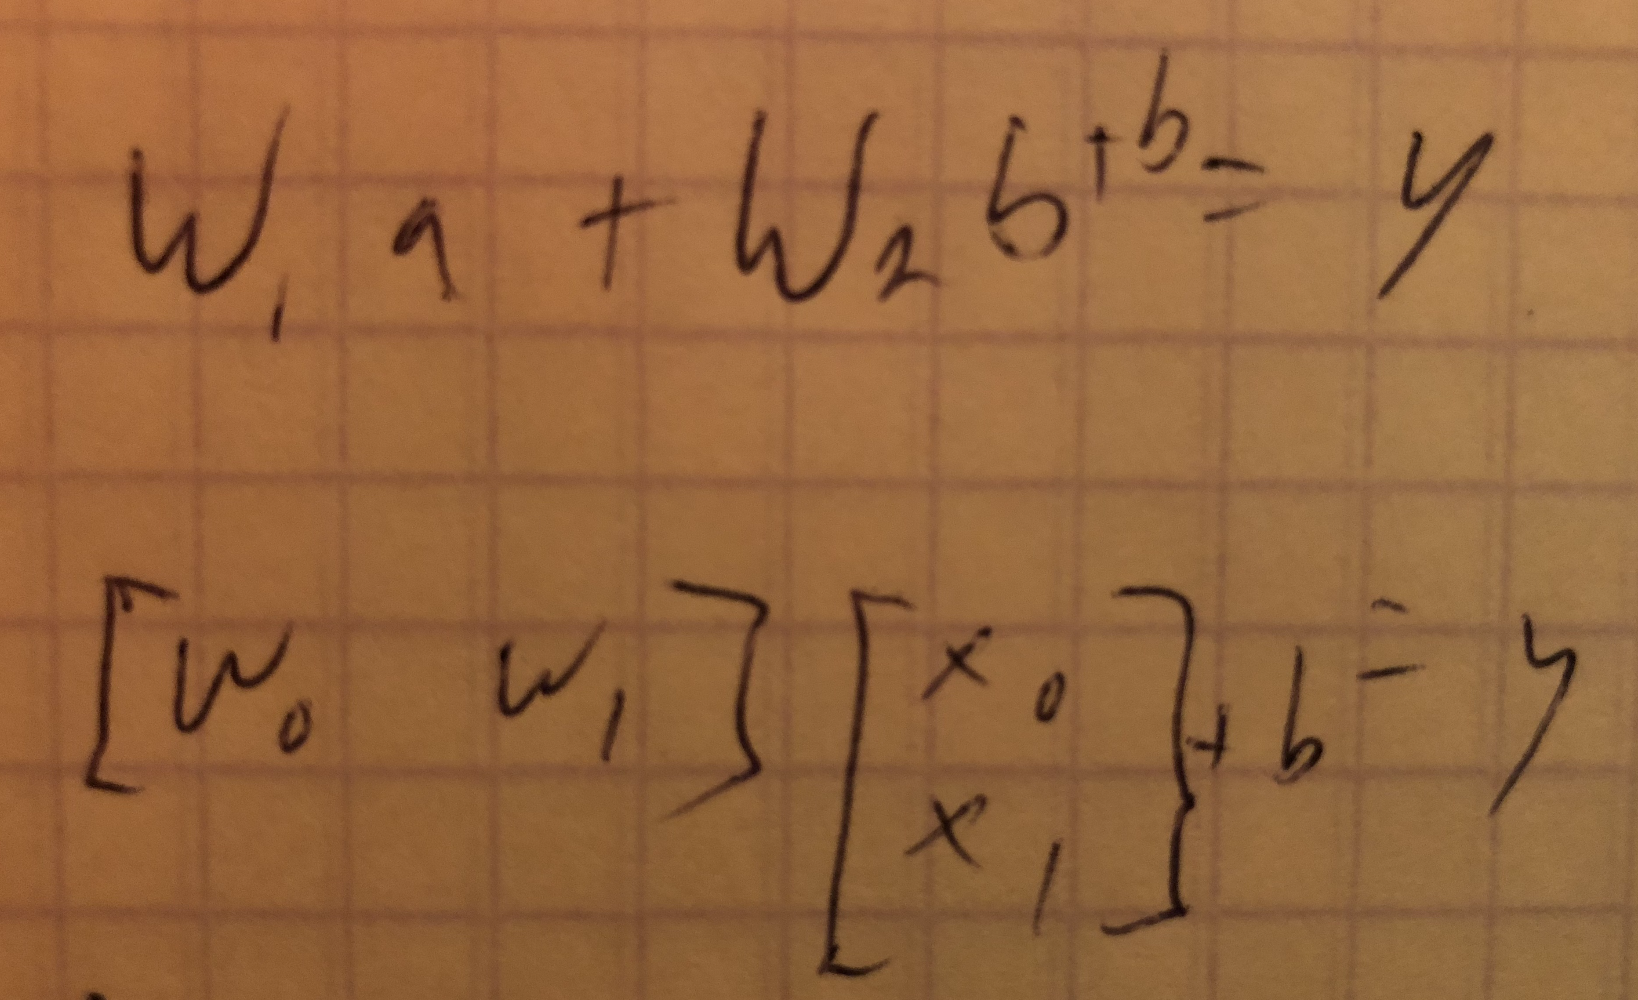 W₁ a + W₂ b + b = y
[w₀ w₁] [x₀ x₁] + b = y